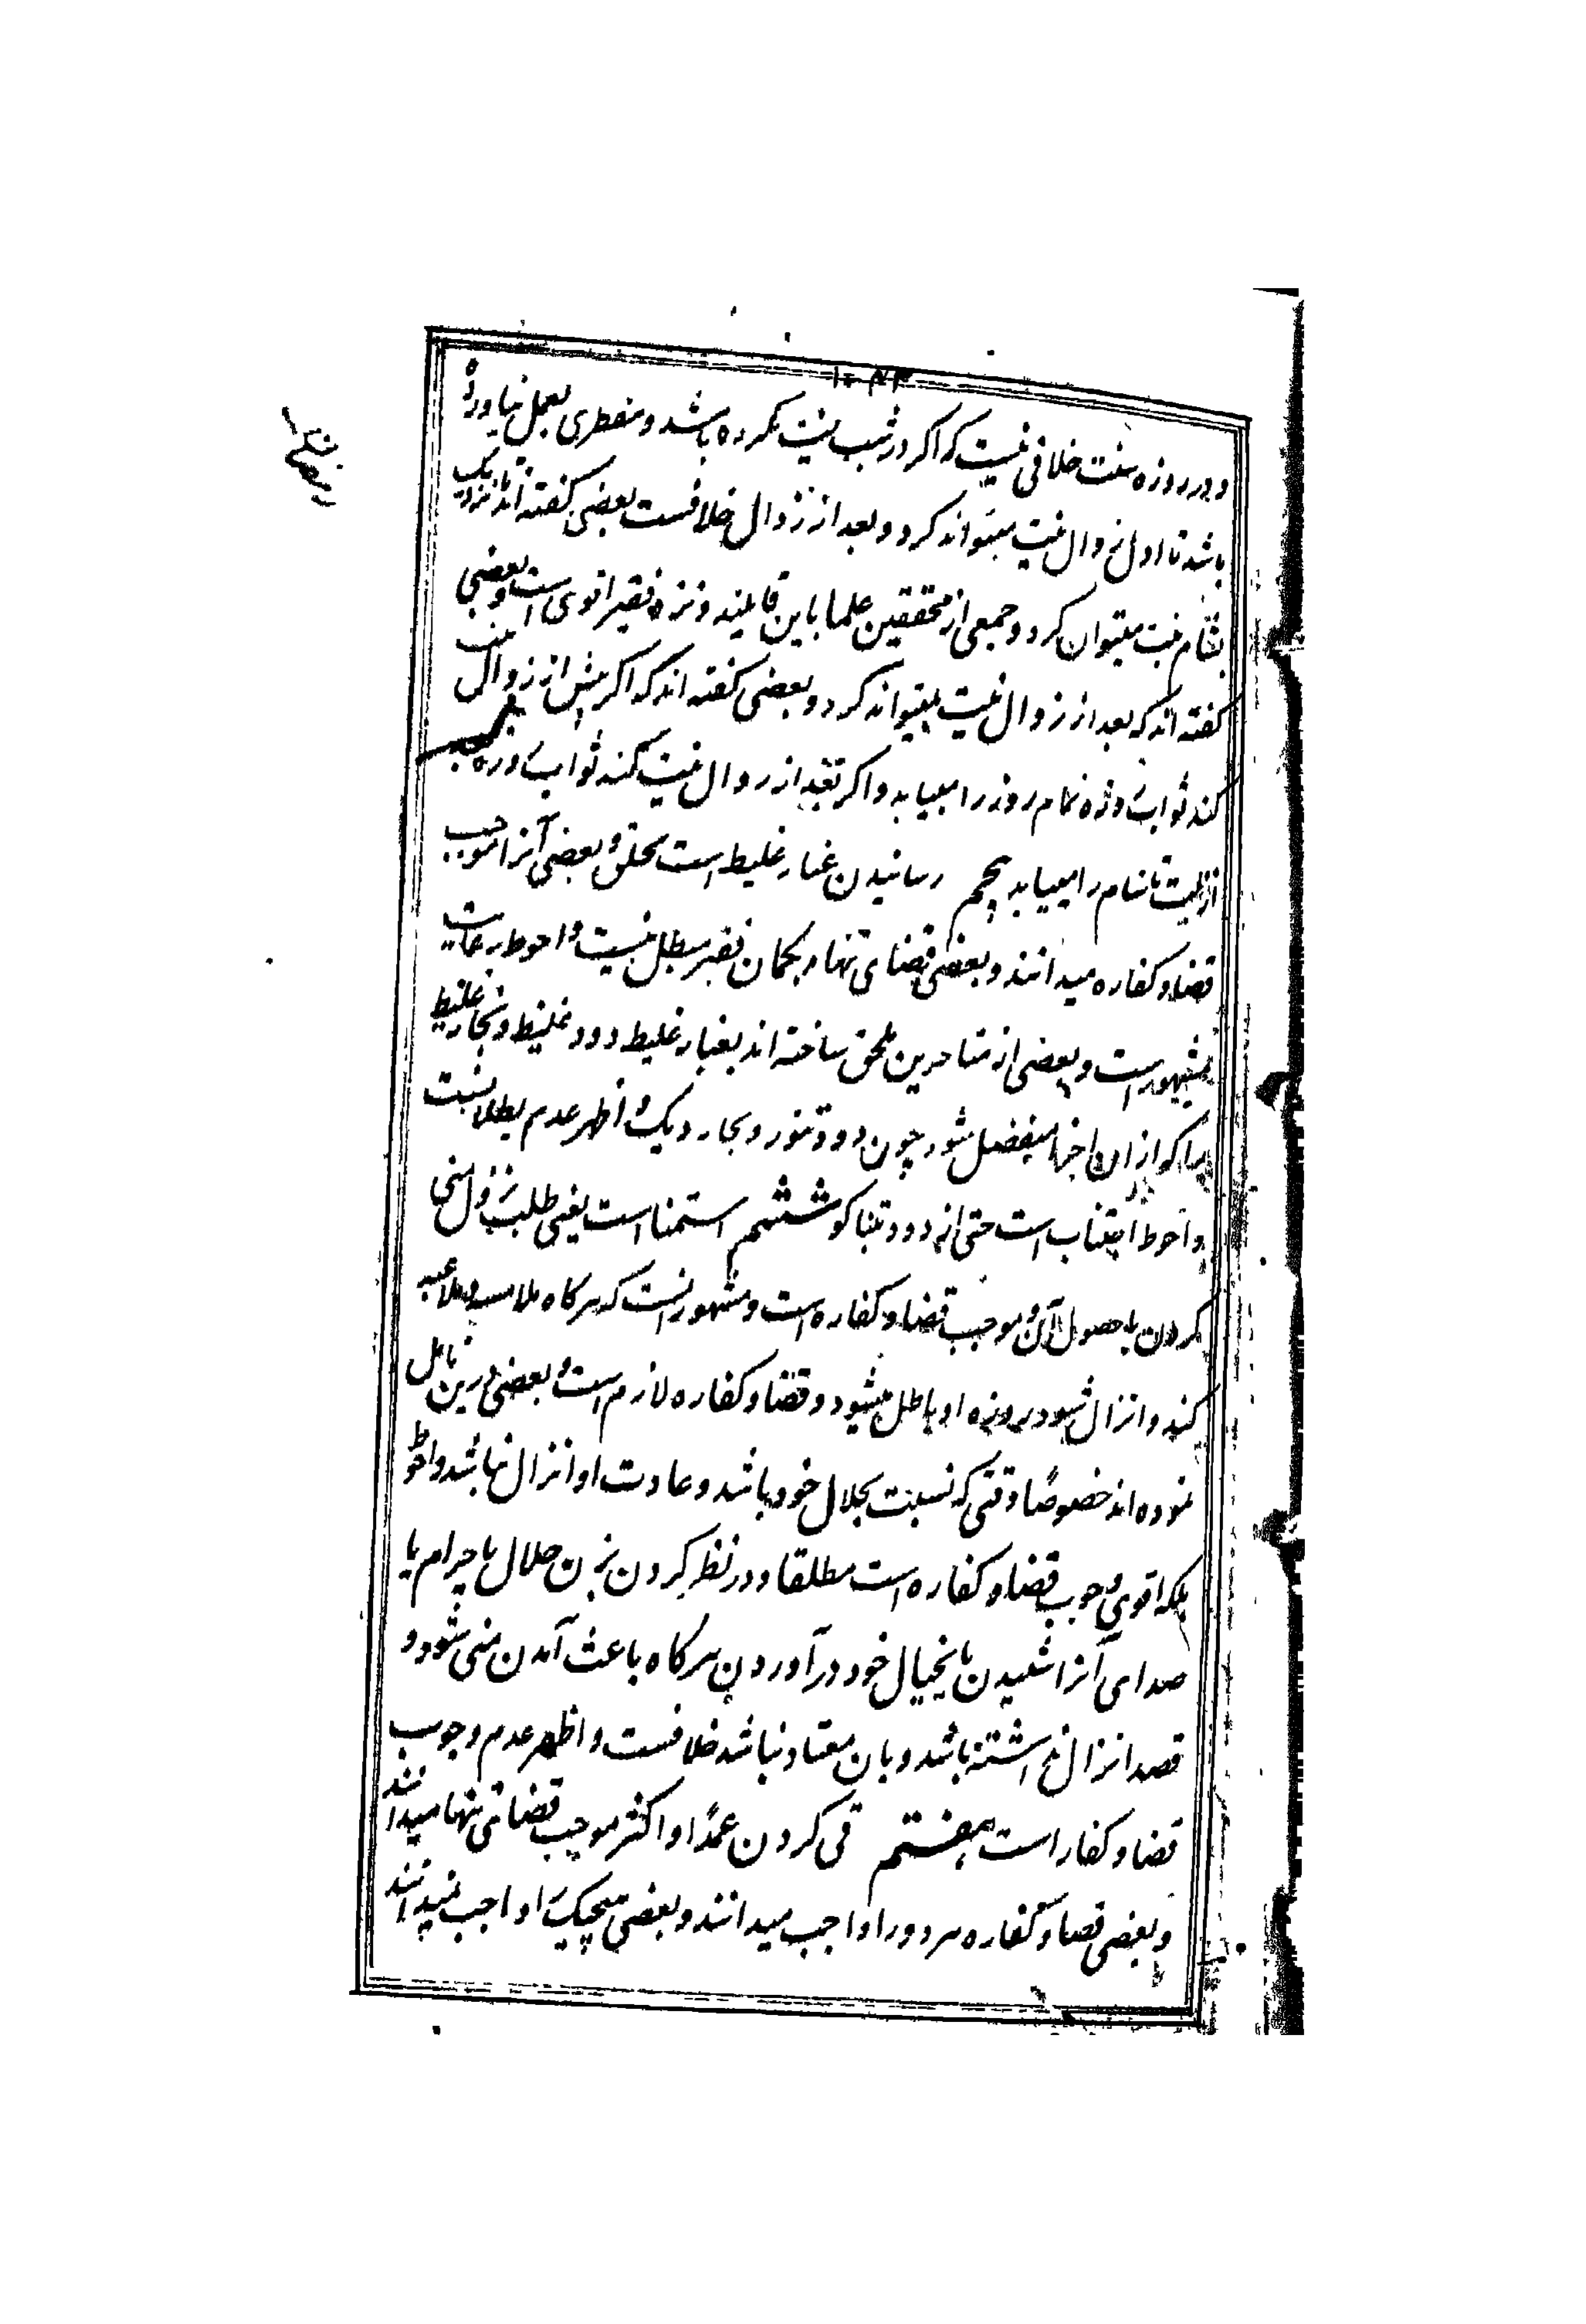 و در روزه سنت خلافی نیست که اکر در شب نیت نکرده باشد و مفطری بعمل نیاورده
باشد تا اول زوال نیت میتواند کرد و بعد از زوال خلافست بعضی کفته‌اند تا نزدیک
بشام نیت میتوان کرد و جمعی از محققین علما باین قایلند و نزد فقیر اقوی است و بعضی
کفته اند که بعد از زوال نیت نمیتواند کرد و بعضی کفته اند که اکر پیش از زوال نیت
کند ثواب روزه تمام روز را مییابد و اکر بعد از زوال نیت کند ثواب روزه
از نیت تا شام را مییابد پنجم رسانیدن غبار غلیظ است بحلق و بعضی آنرا موجب
قضا و کفاره میدانند و بعضی قضای تنها و بکمان فقیر مبطل نیست و احوط رعایت
مشهور است و بعضی از متاخرین ملحق ساخته اند بغبار غلیظ دود غلیظ و بخار غلیظ
را که از ان اجزا منفصل شود چون دود تنور و بخار دیک و اظهر عدم بطلانست
و احوط اجتناب است حتی از دود تنباکو ششم استمنا است یعنی طلب نزول منی
کردن با حصول آن و موجب قضا و کفاره است و مشهور آنست که هرکاه ملامسه و ملاعبه
کند و انزال شود روزه او باطل میشود و قضا و کفاره لازم است و بعضی درین تامل
نموده اند خصوصا وقتی که نسبت بحلال خود باشد و عادت او انزال نباشد و احوط
بلکه اقوی وجوب قضا و کفاره است مطلقا و در نظر کردن بزن حلال یا حرام یا
صدای آنرا شنیدن یا بخیال خود در آوردن هرکاه باعث آمدن منی شود و
قصد انزال نداشته باشد و بان معتاد نباشد خلافست و اظهر عدم وجوب
قضا و کفار است هفتم قی کردن عمدا و اکثر موجب قضای تنها میدانند
و بعضی قضا و کفاره هر دو را واجب میدانند و بعضی هیچیک را واجب نمیدانند